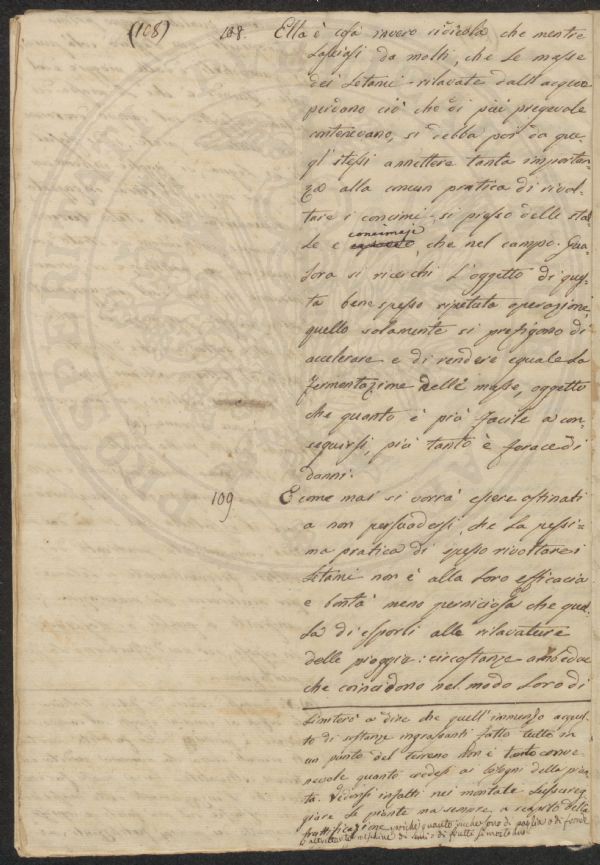 (108) 108. Ella è cosa invero ridicola che mentre
lasciasi da molti, che le masse
dei letami rilavate dall'acque
perdano ciò che di più pregevole
contenevano, si debba poi da que
gl'stessi annettere tanta importan
za alla comun pratica di rivol-
tare i concimi, si presso delle stal
le e concimaje, che nel campo. Qua
lora si ricerchi l'oggetto di ques-
ta bene spesso ripetuta operazione,
quello solamente si prefiggono di
accelerare e di rendere eguale la
fermentazione delle masse, oggetto
che quanto è più facile a con-
seguirsi, più tanto è ferace di
danni.
109 E come mai si vorrà essere ostinati
a non persuadersi, che la pessi-
ma pratica di spesso rivoltare i
letami non è alla loro efficacia
e bontà meno perniciosa che quel
la di esporli alle rilavature
delle pioggie: circostanze ambedue
che coincidono nel modo loro di
limiterò a dire che quell'immenso acquis
to di sostanze ingrassanti fatto tutto in
un punto del terreno non è tanto conve
nevole quanto credesi ai bisogni della pian
ta. Vedonsi infatti nei montate lussureg
giare le piante ma sempre a scapito della
fruttificazione poichè quanto ricche sono di paglia o di foglie
altrettanto meschine di semi o di frutta si mostrano.